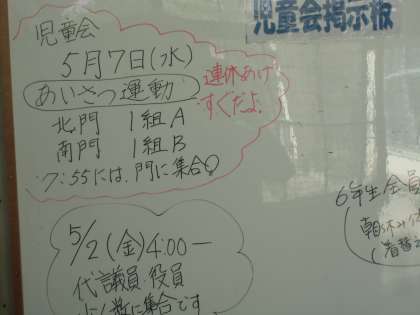 児童会掲示板
児童会
5月7日(水)
あいさつ運動
連休あけ
すぐだよ!
北門 1組A
南門 1組B
7:55には、門に集合
5/2(金)4:00―
代議員・役員
に集合です
6年生 会員
朝休み
着替